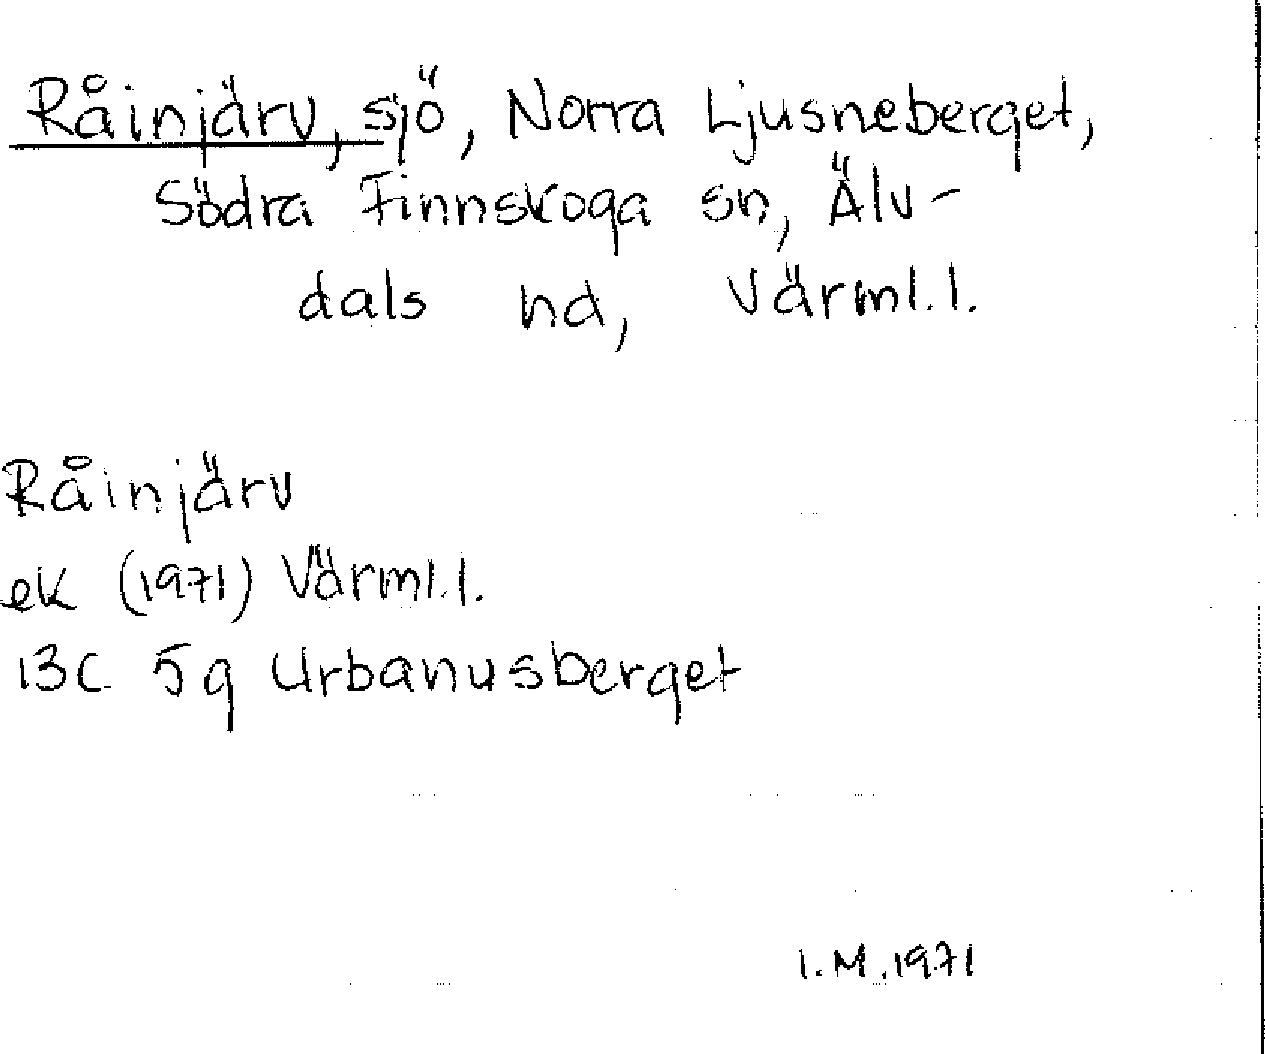 Råinjärv, sjö, Norra Ljusneberget,
Södra Finnskoga sn, Älv-
dals hd, Värml.l.
Råinjärv
ek (1971) Värml.l.
13C 5g Urbanusberget
I.M.1971